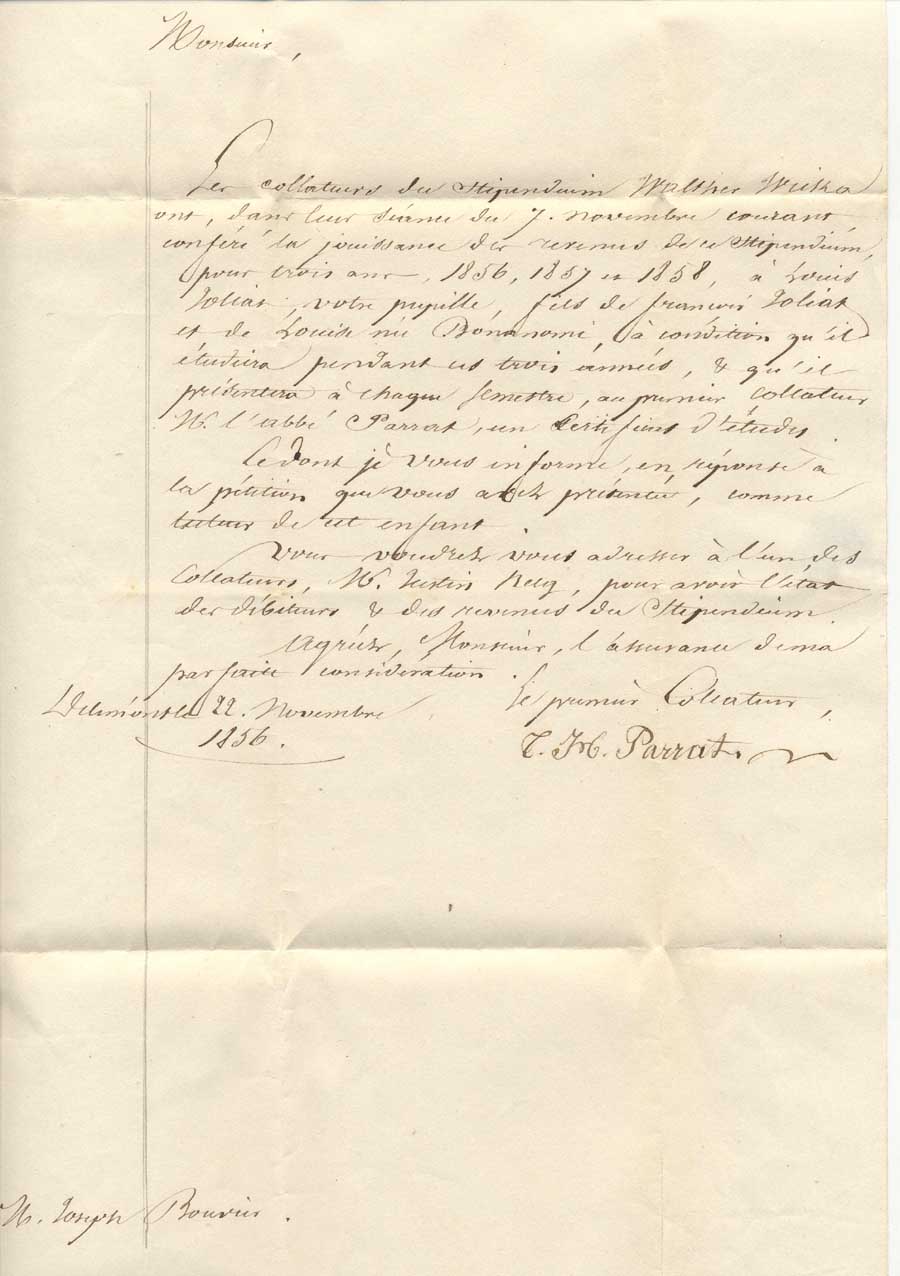 Monsieur,
Les collateurs du Stipendium Walther Wicka
ont, dans leur séance du 7. novembre courant
conféré la jouissance des revenus de ce Stipendium,
pour trois ans, 1856, 1857 et 1858, à Louis
Joliat, votre pupille, fils de françois Joliat
et de Louise née Bonanomi, à condition qu'il
étudiera pendant ces trois années, & qu'il
présentera à chaque semestre, au premier Collateur
M. l'abbé Parrat, un Certificat d'études.
Ce dont je vous informe, en réponse à
la pétition que vous avez présentée, comme
tuteur de cet enfant.
Vous voudrez vous adresser à l'un des
Collateurs, M. Justin, pour avoir l'état
des débiteurs & des revenus du Stipendium.
Agréez, Monsieur, l'assurance de ma
parfaite considération.
Delémont le 22. Novembre
1856.
le premier Collateur,
Parrat.
M. Joseph Bouvier.